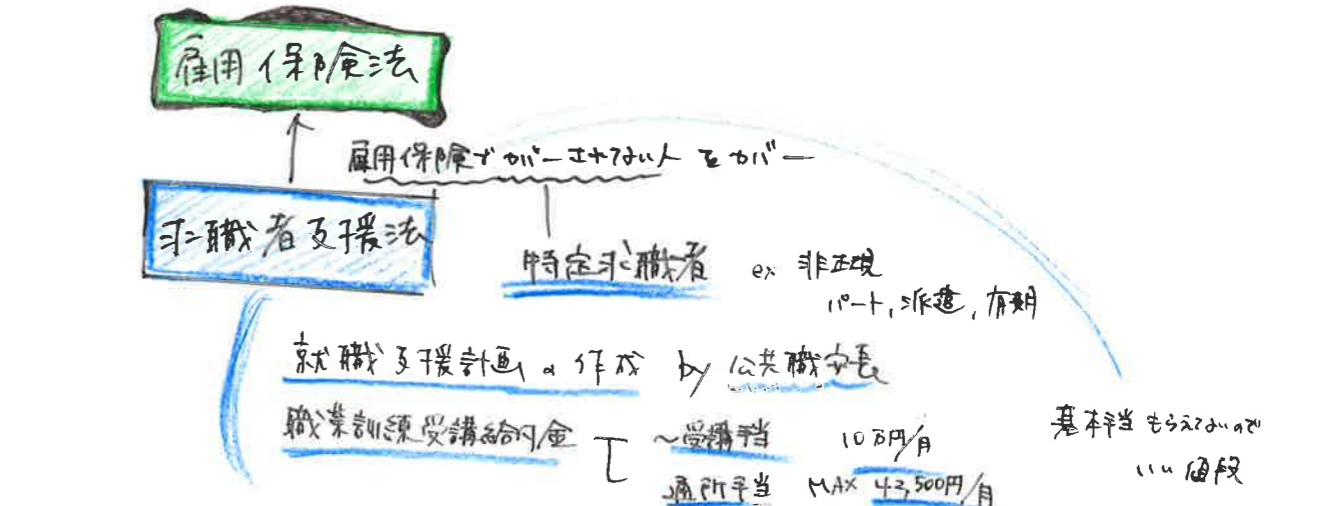 雇用保険法
雇用保険でカバーされてない人をカバー
求職者支援法
特定求職者 ex 非正規
パート, 派遣, 有期
就職支援計画の作成 by 公共職安長
職業訓練受講給付金 〜受講手当 10万円/月
通所手当 MAX 42,500円/月
基本手当もらえてないので
いい値段